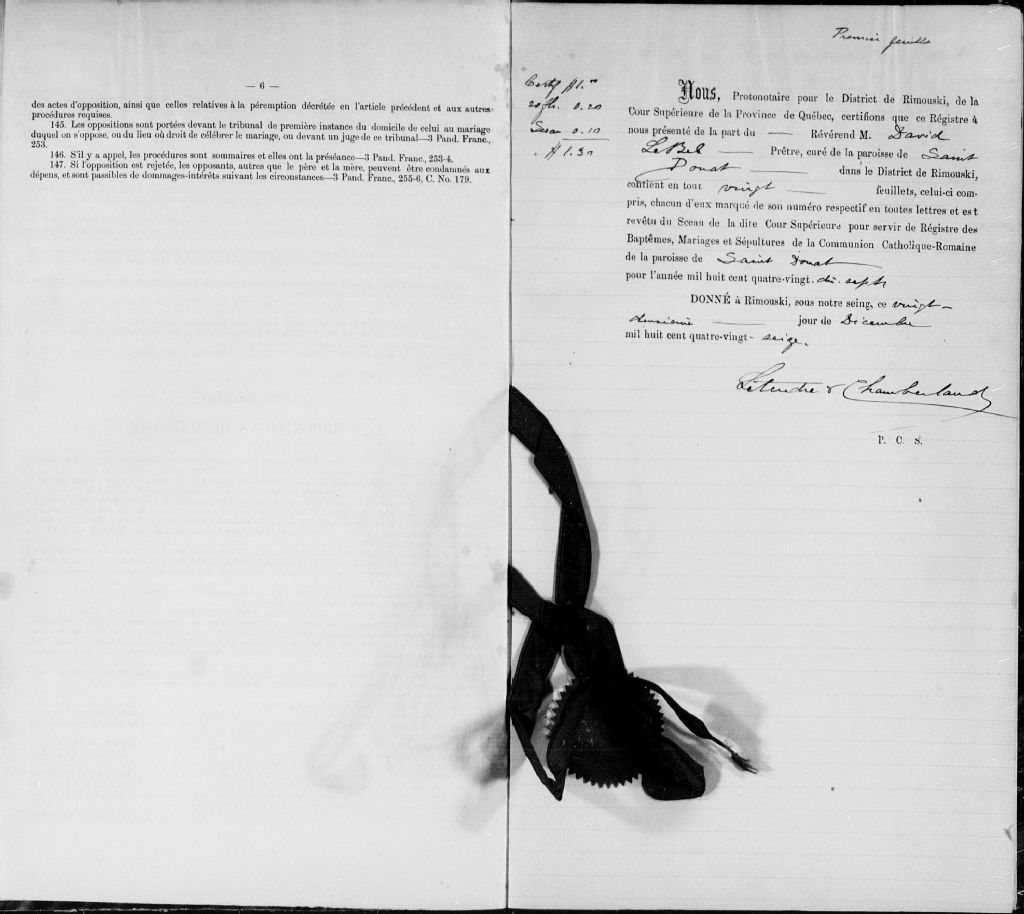 — 6 —
des actes d'opposition, ainsi que celles relatives à la péremption décrétée en l'article précédent et aux autres
procédures requises.
145. Les oppositions sont portées devant le tribunal de première instance du domicile de celui au mariage
duquel on s'oppose, ou du lieu où droit de célébrer le mariage, ou devant un juge de ce tribunal—3 Pand. Franc.,
253.
146. S'il y a appel, les procédures sont sommaires et elles ont la préséance—3 Pand. Franc., 253-4.
147. Si l'opposition est rejetée, les opposants, autres que le père et la mère, peuvent être condamnés aux
dépens, et sont passibles de dommages-intérêts suivant les circonstances—3 Pand. Franc., 255-6, C. No. 179.
Premier feuillet
Certif $1.00
20 fts. 0.20
Sceau 0.10
$1.30
Nous, Protonotaire pour le District de Rimouski, de la
Cour Supérieure de la Province de Québec, certifions que ce Régistre à
nous présenté de la part du — Révérend M. David
LeBel — Prêtre, curé de la paroisse de Saint
Donat — dans le District de Rimouski,
contient en tout vingt — feuillets, celui-ci com-
pris, chacun d'eux marqué de son numéro respectif en toutes lettres et est
revêtu du Sceau de la dite Cour Supérieure pour servir de Régistre des
Baptêmes, Mariages et Sépultures de la Communion Catholique-Romaine
de la paroisse de Saint Donat —
pour l'année mil huit cent quatre-vingt-dix-sept
DONNÉ à Rimouski, sous notre seing, ce vingt-
deuxième — jour de Décembre
mil huit cent quatre-vingt-seize.
Letendre & Chamberland
P. C. S.